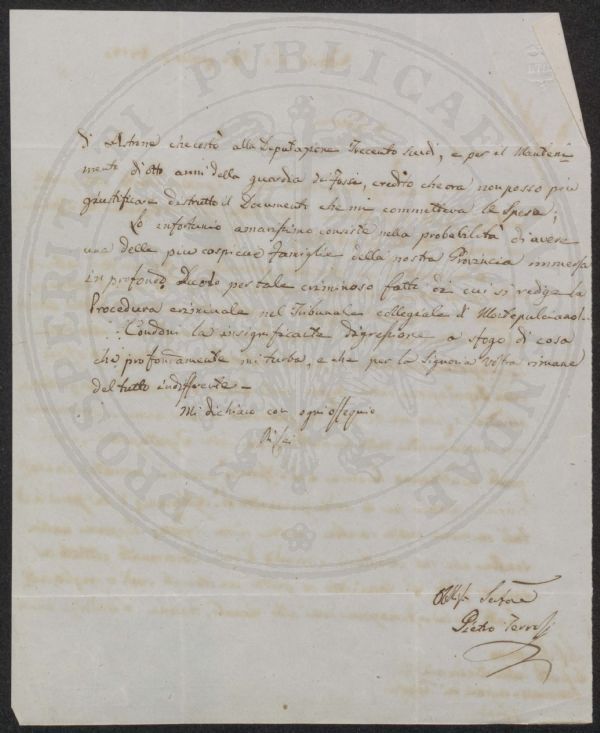 di Astrone che costò alla Deputazione Trecento Scudi, e per il Manteni-
mento d'otto anni della guardia de Fossi, credito che ora non posso più
giustificare distrutto il Documenti che mi commetteva le Spese;
Lo infortunio amarissimo consiste nella probabilità di avere
una delle più cospicue Famiglie della nostra Provincia immersa
in profondo Duolo per tale criminoso fatto di cui si redige la
Procedura criminale nel Tribunale collegiale di Montepulciano.
Condoni la insignificante digressione a sfogo di cosa
che profondamente mi turba, e che per la Signoria Vostra rimane
del tutto indifferente –
Mi dichiaro con ogni ossequio
Di Lei
Pietro
PROSPERITATI PVBLICAE AVGENDAE